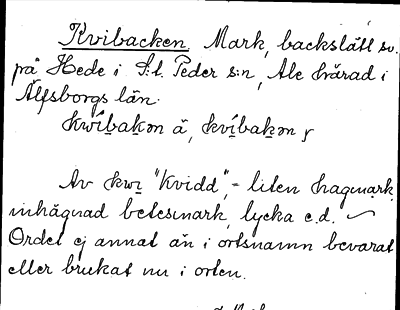 Kvibacken. Mark, backslätt sv.
på Hede i S:t. Peder s:n, Ale härad i
Älfsborgs län.
kwíbakən å, kvíbakən
Av kwi "Kvidd", - liten hagmark,
inhägnad betesmark, lycka e.d.
Ordet ej annat än i ortsnamn bevarat
eller brukat nu i orten.